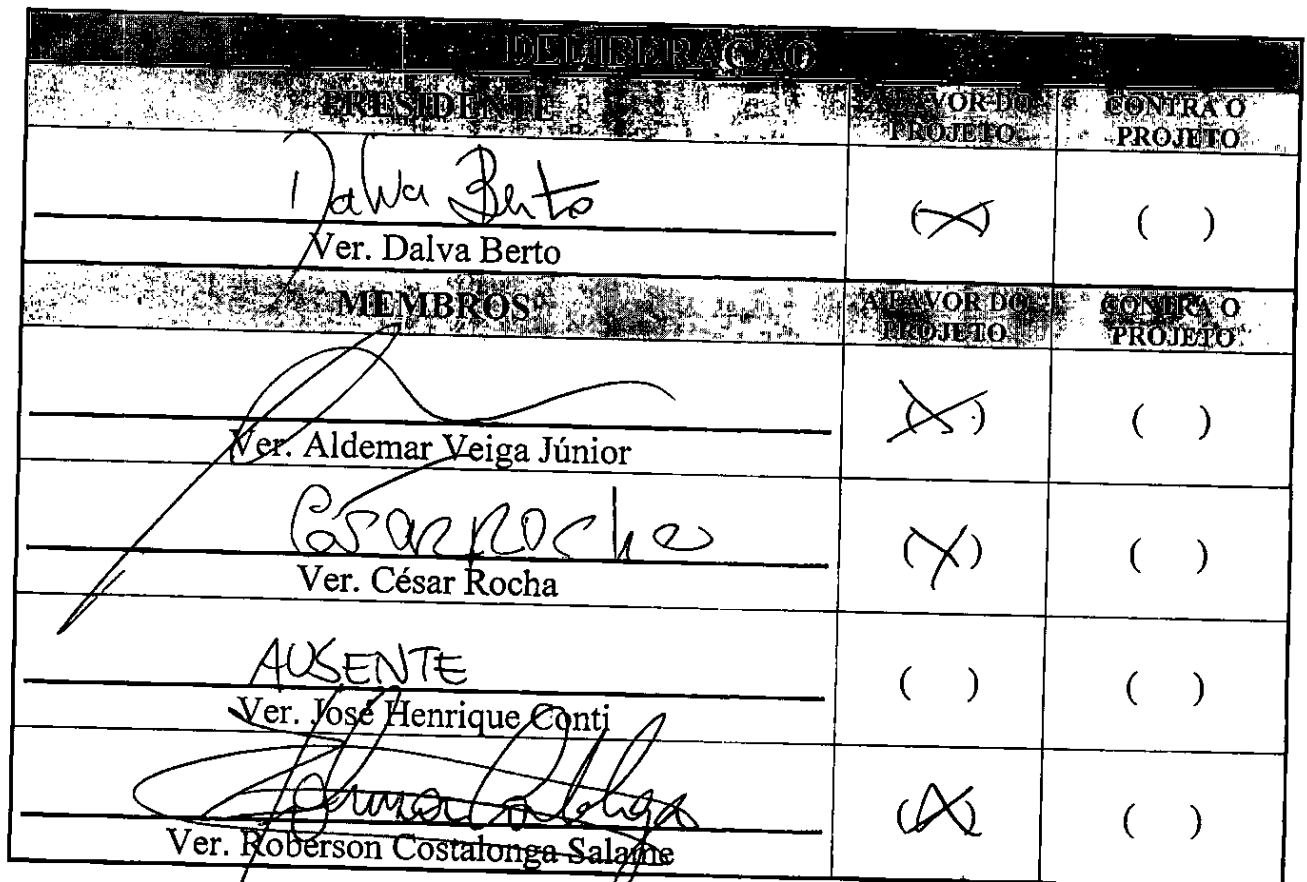 DELIBERAÇÃO
PRESIDENTE A FAVOR DO PROJETO CONTRA O PROJETO
Dalva Berto
Ver. Dalva Berto (X) ( )
MEMBROS A FAVOR DO PROJETO CONTRA O PROJETO
Ver. Aldemar Veiga Júnior (X) ( )
César Rocha
Ver. César Rocha (X) ( )
AUSENTE
Ver. José Henrique Conti ( ) ( )
Ver. Roberson Costalonga Salame (X) ( )